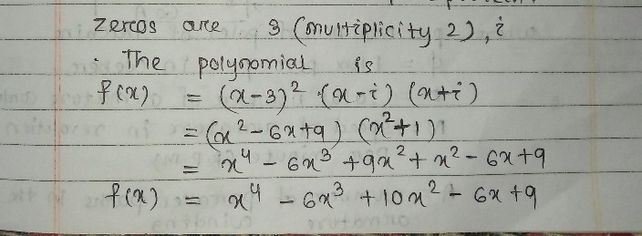 zeros are 3 (multiplicity 2), i
∴ The polynomial is
f(x) = (x-3)² (x-i) (x+i)
= (x² - 6x+9) (x²+1)
= x⁴ - 6x³ + 9x² + x² - 6x + 9
f(x) = x⁴ - 6x³ + 10x² - 6x + 9